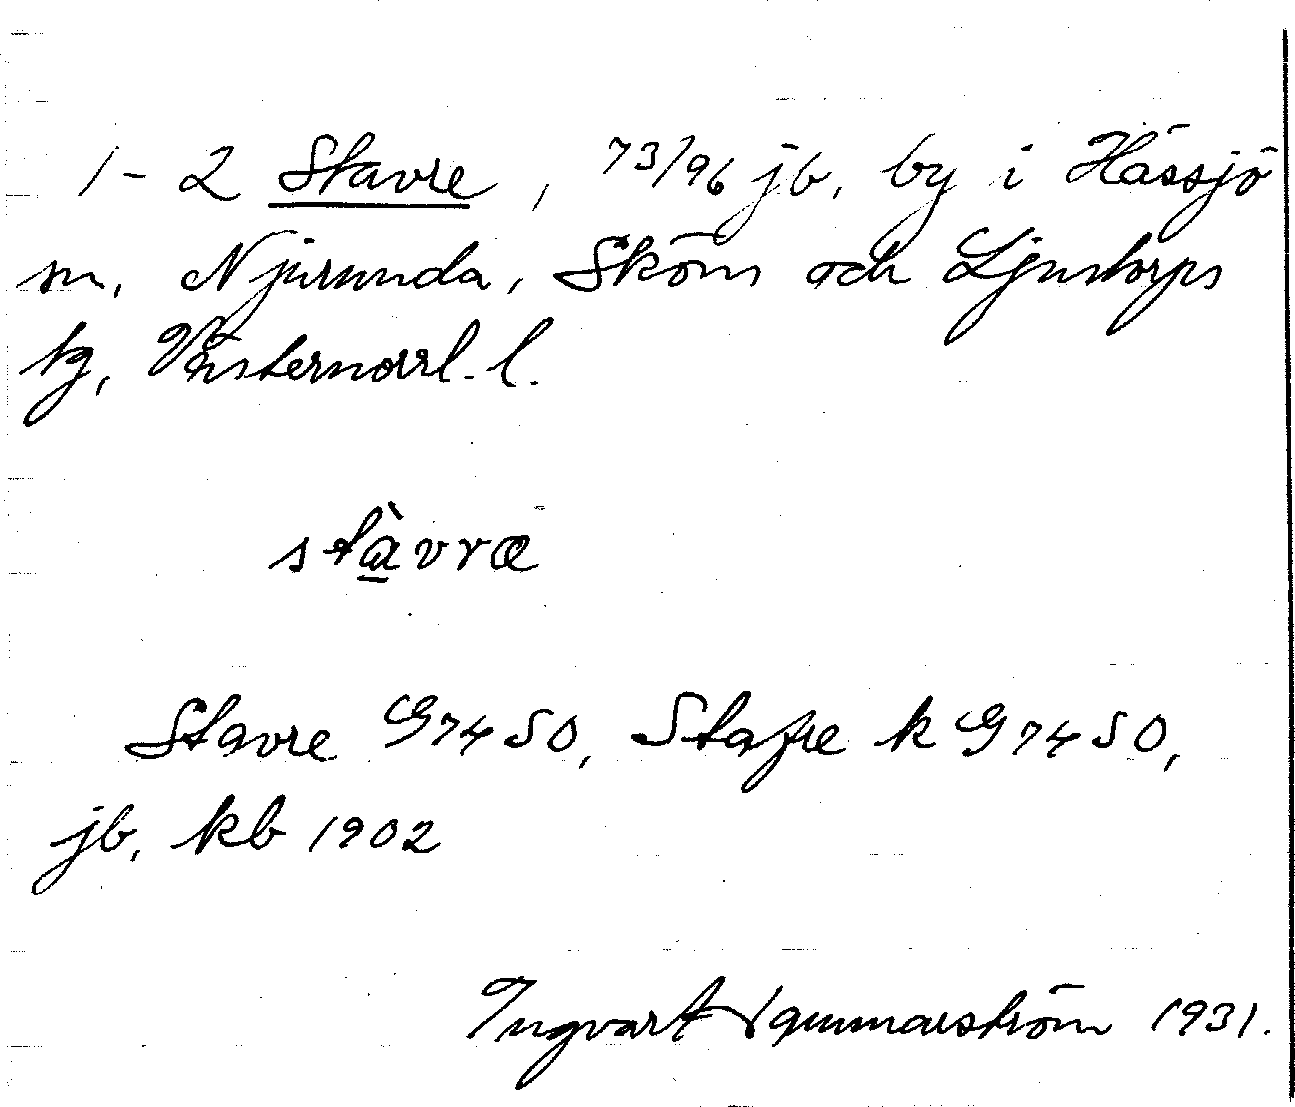 1-2 Stavre, 73/96 jb, by i Hässjö
sn, Njurunda, Sköns och Ljustorps
tg, Västernorrl. l.
stàvrœ
Stavre G 74 SO, Stafre k G 74 SO,
jb, kb 1902
Ingvart Hammarström 1931.